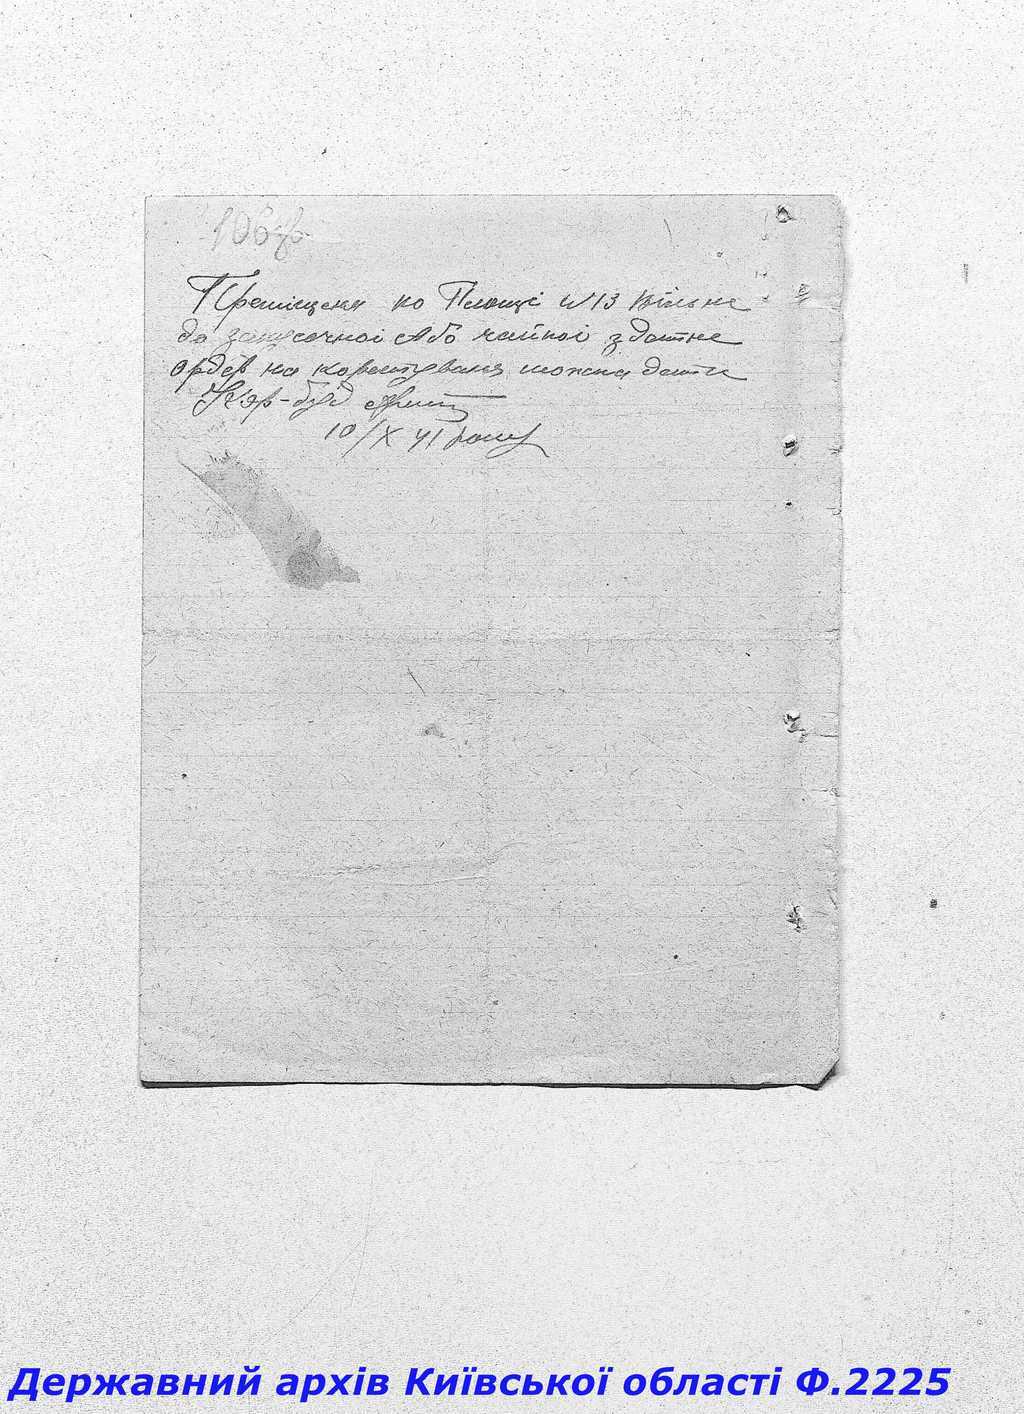 106 зв
Преміщеня по Площі №13 вільне
до закусочної або чайної здатне
ордер на користуваня можна дати
Кер-буд
10/X 41 року
Державний архів Київської області Ф.2225